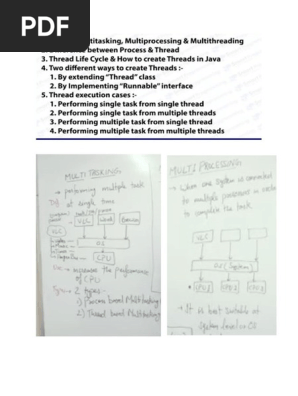 PDF
titasking, Multiprocessing & Multithreading
between Process & Thread
3. Thread Life Cycle & How to create Threads in Java
4. Two different ways to create Threads :-
1. By extending "Thread" class
2. By Implementing "Runnable" interface
5. Thread execution cases :-
1. Performing single task from single thread
2. Performing single task from multiple threads
3. Performing multiple task from single thread
4. Performing multiple task from multiple threads
MULTI TASKING
→ performing multiple task
at single time
VLC
OS
CPU
increases the performance
of CPU
2 types:-
1) Process based Multitasking
2) Thread based Multitasking
MULTI PROCESSING
→ When one system is connected
to multiple processors in order
to complete the task.
VLC
OS (System)
CPU 1
CPU 2
CPU 3
→ It is best suitable at
System level or OS